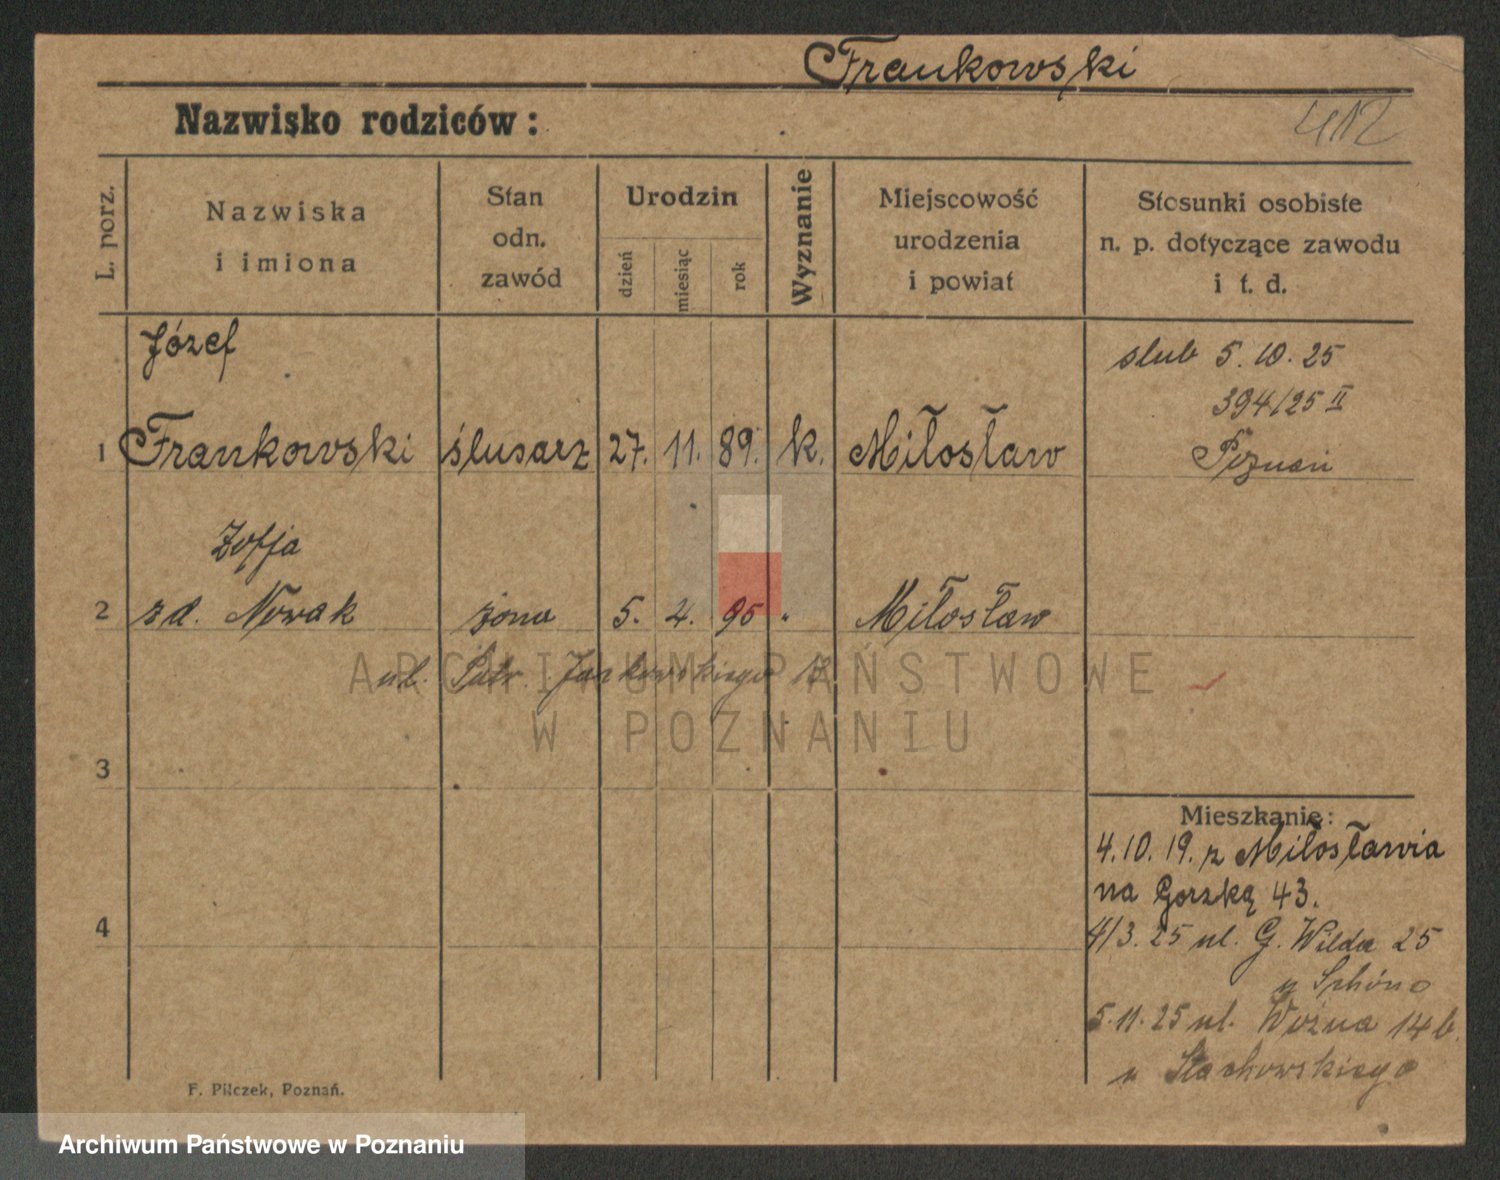 Frankowski
Nazwisko rodziców:
412
L. porz.
Nazwiska
i imiona
Stan
odn.
zawód
Urodzin
dzień
miesiąc
rok
Wyznanie
Miejscowość
urodzenia
i powiat
Stosunki osobiste
n. p. dotyczące zawodu
i t. d.
Józef
slub 5.10.25
394/25 II
1 Frankowski ślusarz 27. 11. 89. k. Miłosław Poznań
Zofja
2 zd. Nowak żona 5. 4. 95 " Miłosław
ul. Patr. Jackowskiego
ARCHIWUM PAŃSTWOWE
W POZNANIU
3
Mieszkanie:
4.10.19. z Miłosławia
na Gorzką 43.
4
4/3.25 ul. G. Wilda 25
u
5.11.25 ul. Woźna 14b.
u Stachowskiego
F. Pilczek, Poznań.
Archiwum Państwowe w Poznaniu